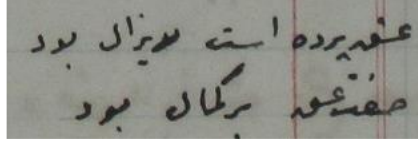 عشق پرده است لایزال بود
صفت عشق بر کمال بود